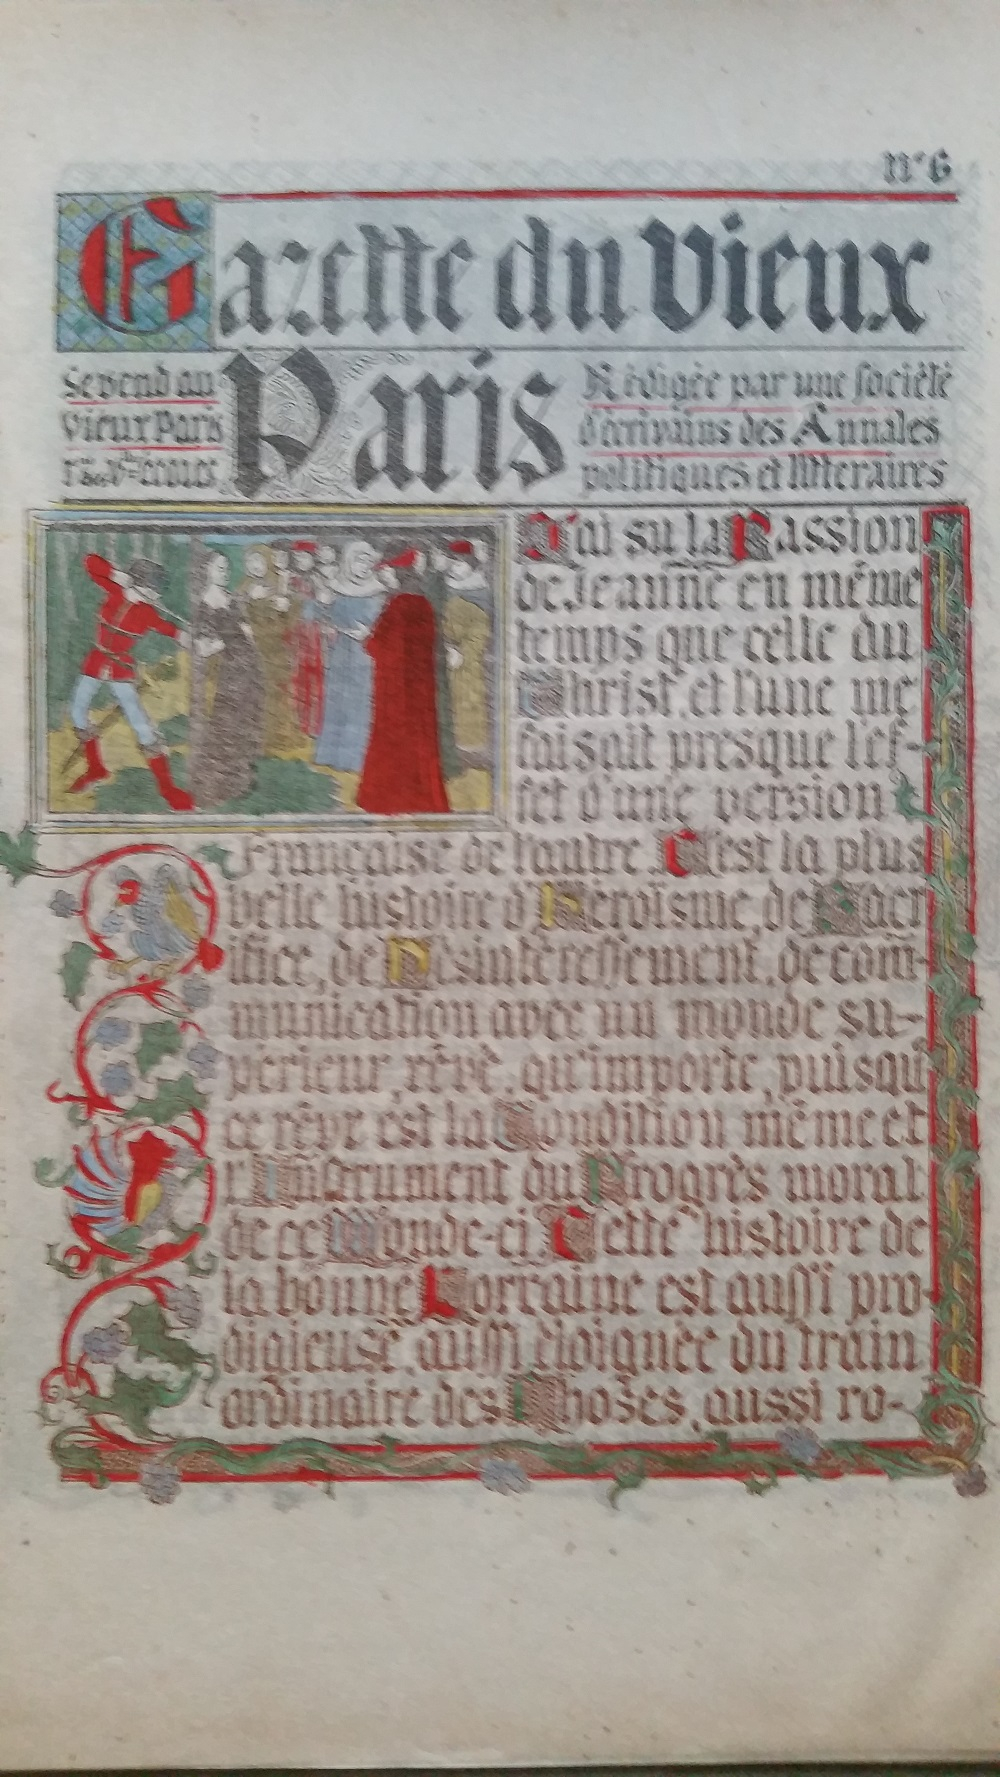 n° 6
Gazette du Vieux
Paris
Se vend au
vieux Paris
Rédigée par une société
d'écrivains des Annales
politiques et littéraires
J'ai su la Passion
de Jeanne en même
temps que celle du
Christ, et l'une me
faisait presque l'ef-
fet d'une version
Française de l'autre. C'est la plus
belle histoire d'Héroïsme, de Sacr
ifice, de Désintéressement, de com-
munication avec un monde su-
périeur, rêvé, qu'importe, puisqu
ce rêve est la Condition même et
l'Instrument du Progrès moral
de ce Monde-ci. Cette histoire de
la bonne Lorraine est aussi pro-
digieuse, aussi éloignée du train
ordinaire des Choses, aussi ro-